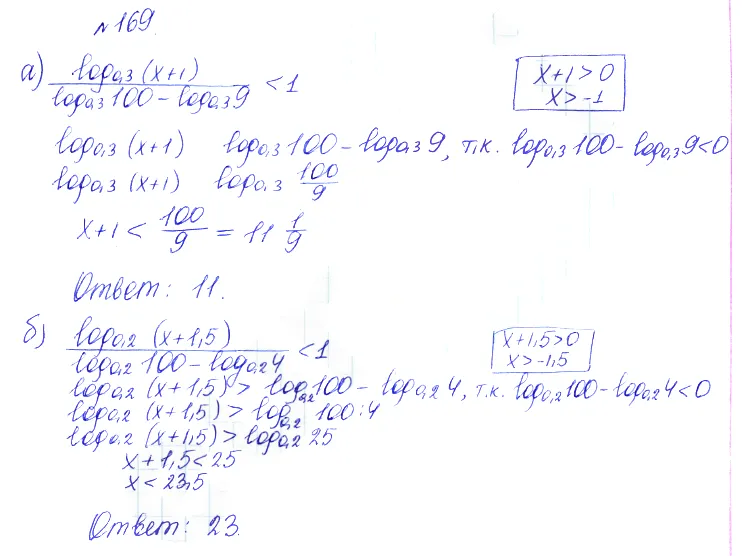 №169.
а) log₀,₃(x+1) / log₀,₃100 − log₀,₃9 < 1
x+1>0
x>-1
log₀,₃(x+1) log₀,₃100 − log₀,₃9, т.к. log₀,₃100 − log₀,₃9<0
log₀,₃(x+1) log₀,₃ 100/9
x+1 < 100/9 = 11 1/9
Ответ: 11.
б) log₀,₂(x+1,5) / log₀,₂100 − log₀,₂4 < 1
x+1,5>0
x>-1,5
log₀,₂(x+1,5) > log₀,₂100 − log₀,₂4, т.к. log₀,₂100 − log₀,₂4<0
log₀,₂(x+1,5) > log₀,₂ 100:4
log₀,₂(x+1,5) > log₀,₂25
x+1,5<25
x<23,5
Ответ: 23.